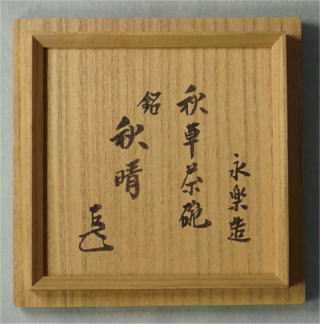 永樂造
秋草茶碗
銘
秋晴